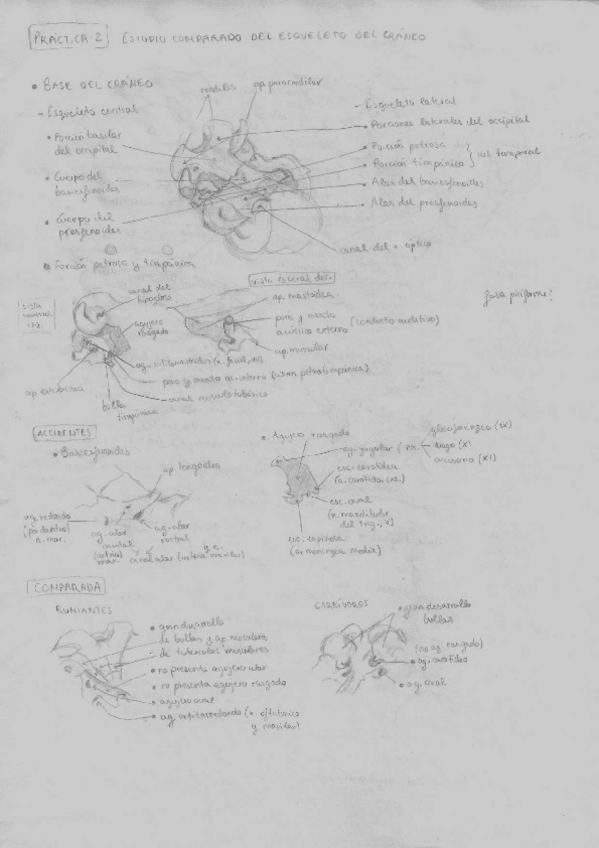 PRÁCTICA 2. ESTUDIO COMPARADO DEL ESQUELETO DEL CRÁNEO
• BASE DEL CRÁNEO
- Esqueleto central
• Porción basilar
del occipital
• Cuerpo del
basiesfenoides
• Cuerpo del
presfenoides
condilos
ap. paracondilar
- Esqueleto lateral
• Porciones laterales del occipital
• Porción petrosa
• Porción timpánica } del temporal
• Alas del basiesfenoides
• Alas del presfenoides
canal del n. óptico
• Porción petrosa y timpánica
vista
canal del
hipogloso
agujero
rasgado
vista lateral der.
ap. mastoidea
poro y meato
acústico externo (conducto auditivo)
ap. muscular
fosa piriforme?
ag. estilomastoideo (n. facial, VII)
poro y meato ac. interno
canal musculotubárico
ap. estiloidea
bulla
timpánica
ACCIDENTES
• Basiesfenoides
ap. pterigoidea
ag. redondo
n. max.
ag. alar
caudal
ag. alar
rostral
canal alar (arteria maxilar)
• Agujero rasgado
ag. yugular
glosofaríngeo (IX)
vago (X)
accesorio (XI)
esc. carotídea
(a. carótida int.)
esc. oval
(n. mandibular
del trig., V)
esc. espinosa
(a. meníngea media)
COMPARADA
RUMIANTES
• gran desarrollo
de bullas y ap. musculares
de tubérculos musculares
• no presenta agujero alar
• no presenta agujero rasgado
• agujero oval
• ag. orbitorredondo (n. oftálmico
y maxilar)
CARNÍVOROS
• gran desarrollo
bullas
(no ag. rasgado)
• ag. carotídeo
• ag. oval